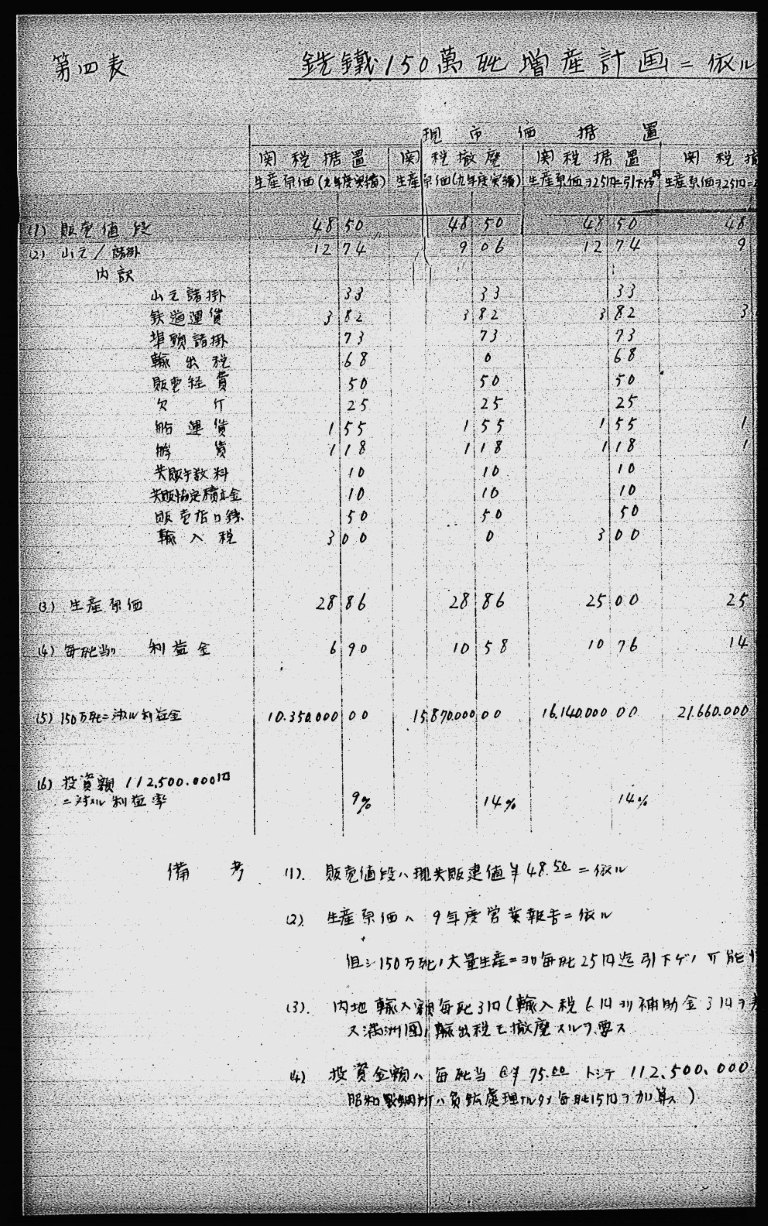 第四表
銑鐵150萬瓲增産計画ニ依ル
現市価据置
関税据置 関税撤廃 関税据置 関税
生産原価(九年度実績) 生産原価(九年度実績) 生産原価ヲ25円ニ引下ゲ 生産原価ヲ25円ニ
(1) 販売値段 48 50 48 50 48 50 48
(2) 山元ノ諸掛 12 74 9 06 12 74 9
内訳
山元諸掛 33 33 33
鉄道運賃 3 82 3 82 3 82 3
埠頭諸掛 73 73 73
輸出税 68 0 68
販売経費 50 50 50
欠斤 25 25 25
船運賃 1 55 1 55 1 55 1
艀賃 1 18 1 18 1 18 1
共販手数料 10 10 10
共販協定積立金 10 10 10
販売店口銭 50 50 50
輸入税 3 00 0 3 00
(3) 生産原価 28 86 28 86 25 00 25
(4) 毎瓲当リ 利益金 6 90 10 58 10 76 14
(5) 150万瓲ニ対スル利益金 10.350.000 00 15.870.000 00 16.140.000 00 21.660.000
(6) 投資額 112.500.000円
ニ対スル利益率 9% 14% 14%
備考 (1). 販売値段ハ現共販建値¥48.50ニ依ル
(2). 生産原価ハ 9年度営業報告ニ依ル
但シ150万瓲ノ大量生産ニヨリ毎瓲25円迄引下ゲノ可能
(3). 内地輸入税毎瓲3円(輸入税6円ヨリ補助金3円ヲ
又満洲國ノ輸出税モ撤廃スルヲ要ス
(4) 投資金額ハ毎瓲当@¥75.00トシテ 112.500.000
昭和製鋼所ハ負債處理 毎瓲15円ヲ加算ス)